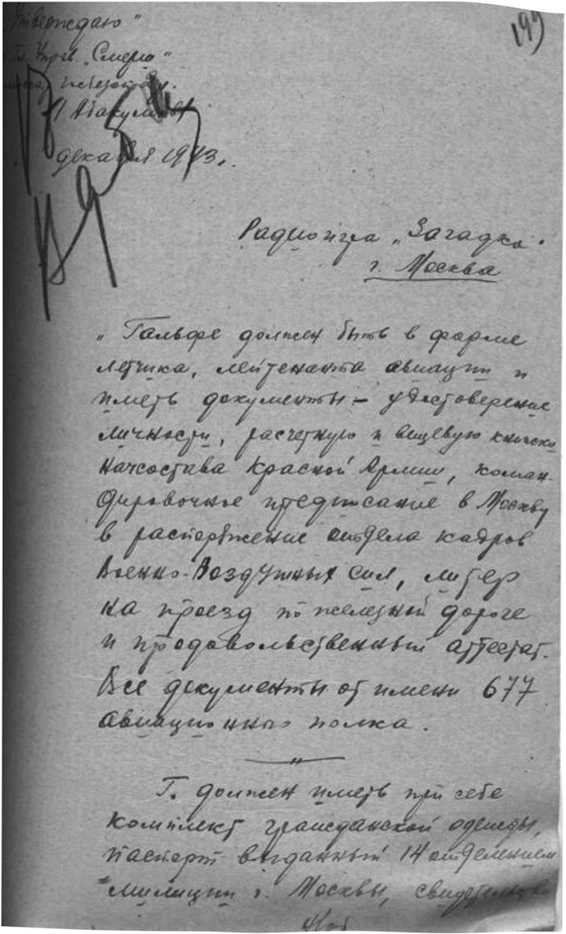 "Утверждаю"
Упр. "Смерш"
Абакумов
декабря 1943.
199
Радиоигра "Загадка".
г. Москва
"Гальфе должен быть в форме
летчика, лейтенанта авиации и
иметь документы – удостоверение
личности, расчетную и вещевую книжки
начсостава Красной Армии, коман-
дировочное предписание в Москву
в распоряжение отдела кадров
Военно-Воздушных сил, литер
на проезд по железной дороге
и продовольственный аттестат.
Все документы от имени 677
авиационного полка.
Г. должен иметь при себе
комплект гражданской одежды,
паспорт выданный 14 отделением
милиции г. Москвы, свидетельство